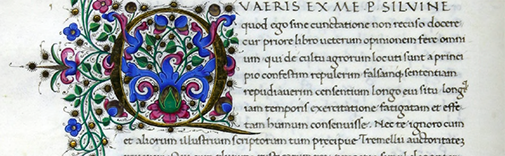 QVAERIS EX ME P. SILVINE
quod ego sine cunctatione non recuso docere
cur priore libro veterum opinionem fere omni
um qui de cultu agrorum locuti sunt a princi
pio confestim repulerim falsamq; sententiam
repudiaverim censentium longo evi situ long
qvam temporis exercitatione fatigatam et effe
tam humum consenuisse. Nec te ignoro cum
et aliorum illustrium scriptorum tum precipue Tremelii auctoritatem